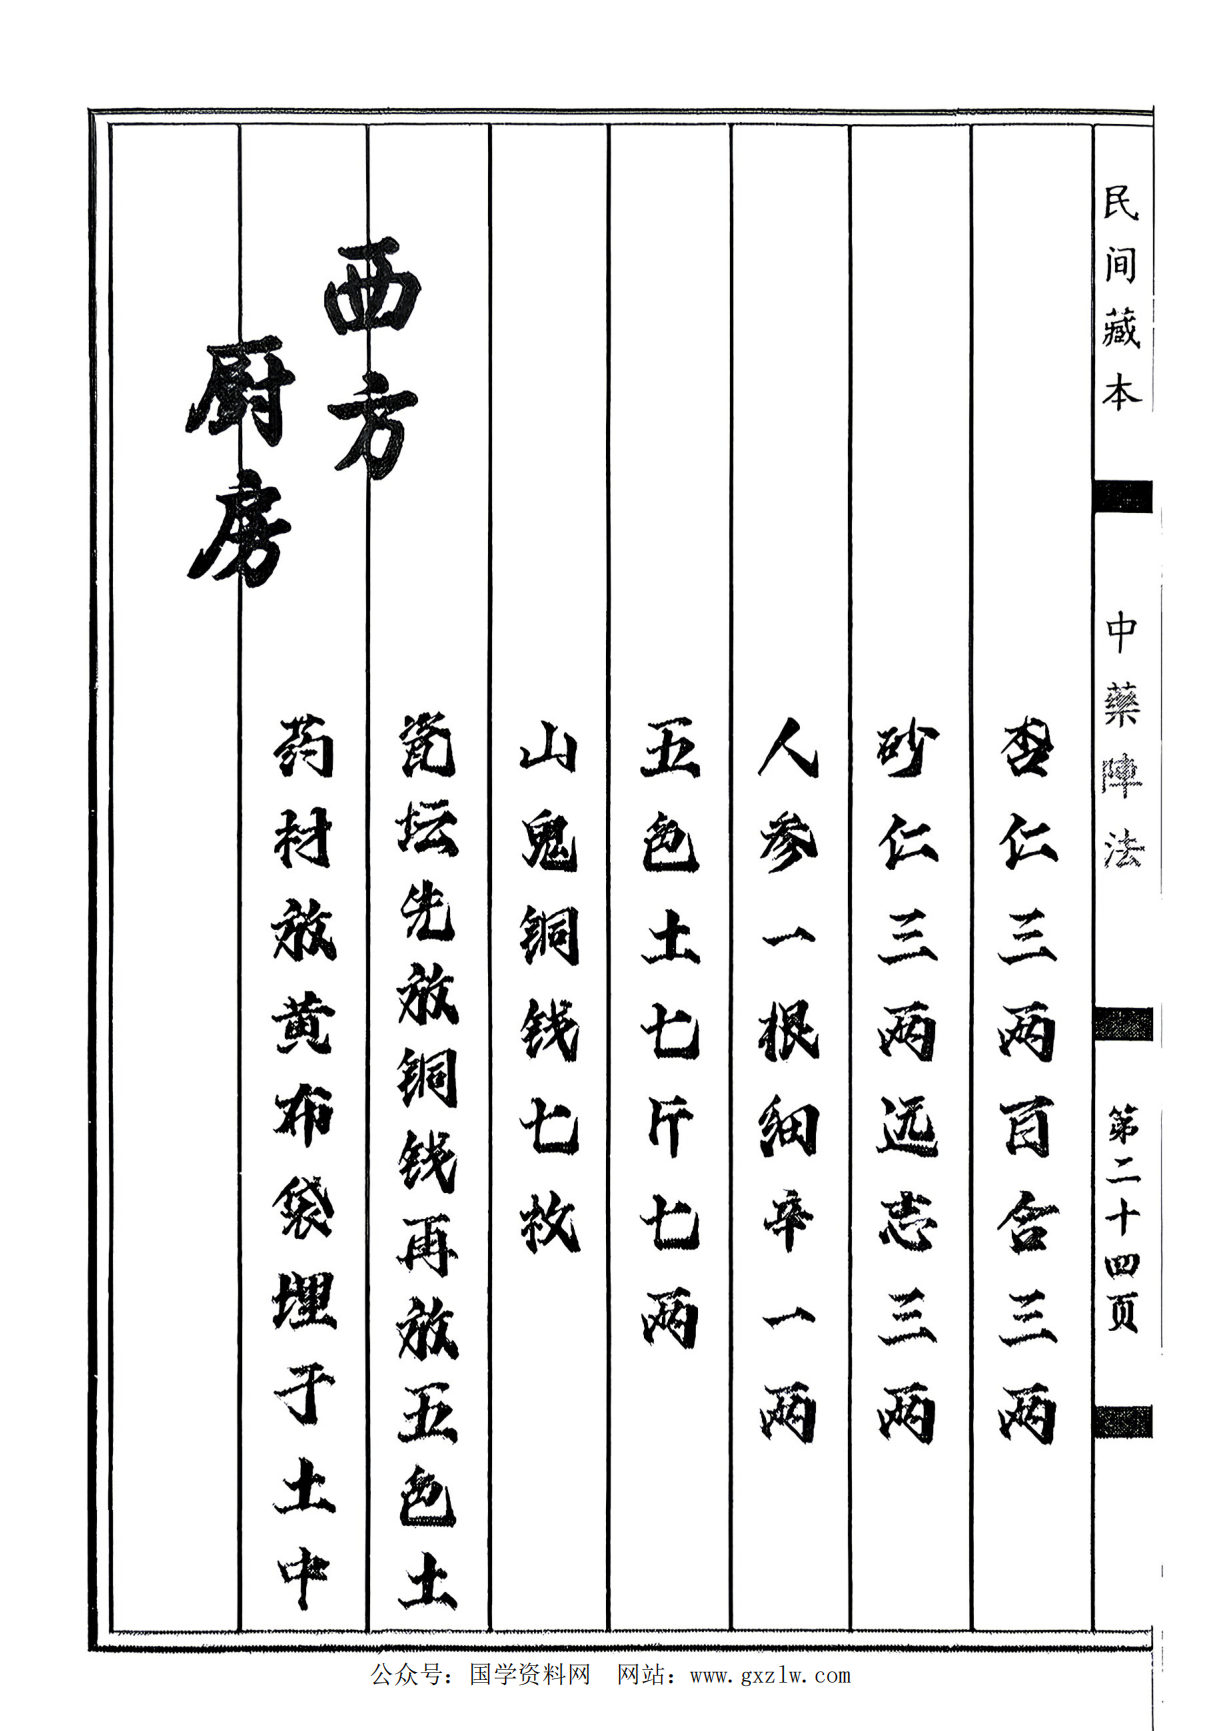 民间藏本
中藥陣法
第二十四页
杏仁三两百合三两
砂仁三两远志三两
人参一根细辛一两
五色土七斤七两
山鬼铜钱七枚
西方
瓷坛先放铜钱再放五色土
厨房
药材放黄布袋埋于土中
公众号：国学资料网 网站：www.gxzlw.com